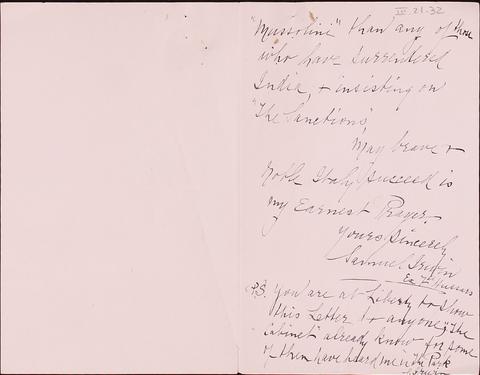 IV. 21. 32
"Mussolini" than any of those
who have surrendered
India, & insisting on
"The Sanctions"
May brave &
Noble Italy succeed is
my Earnest Prayer.
Yours Sincerely
Samuel Irwin
P.S. You are at Liberty to show
this Letter to anyone; "The
Cabinet" already know for some
of them have heard me in The Park